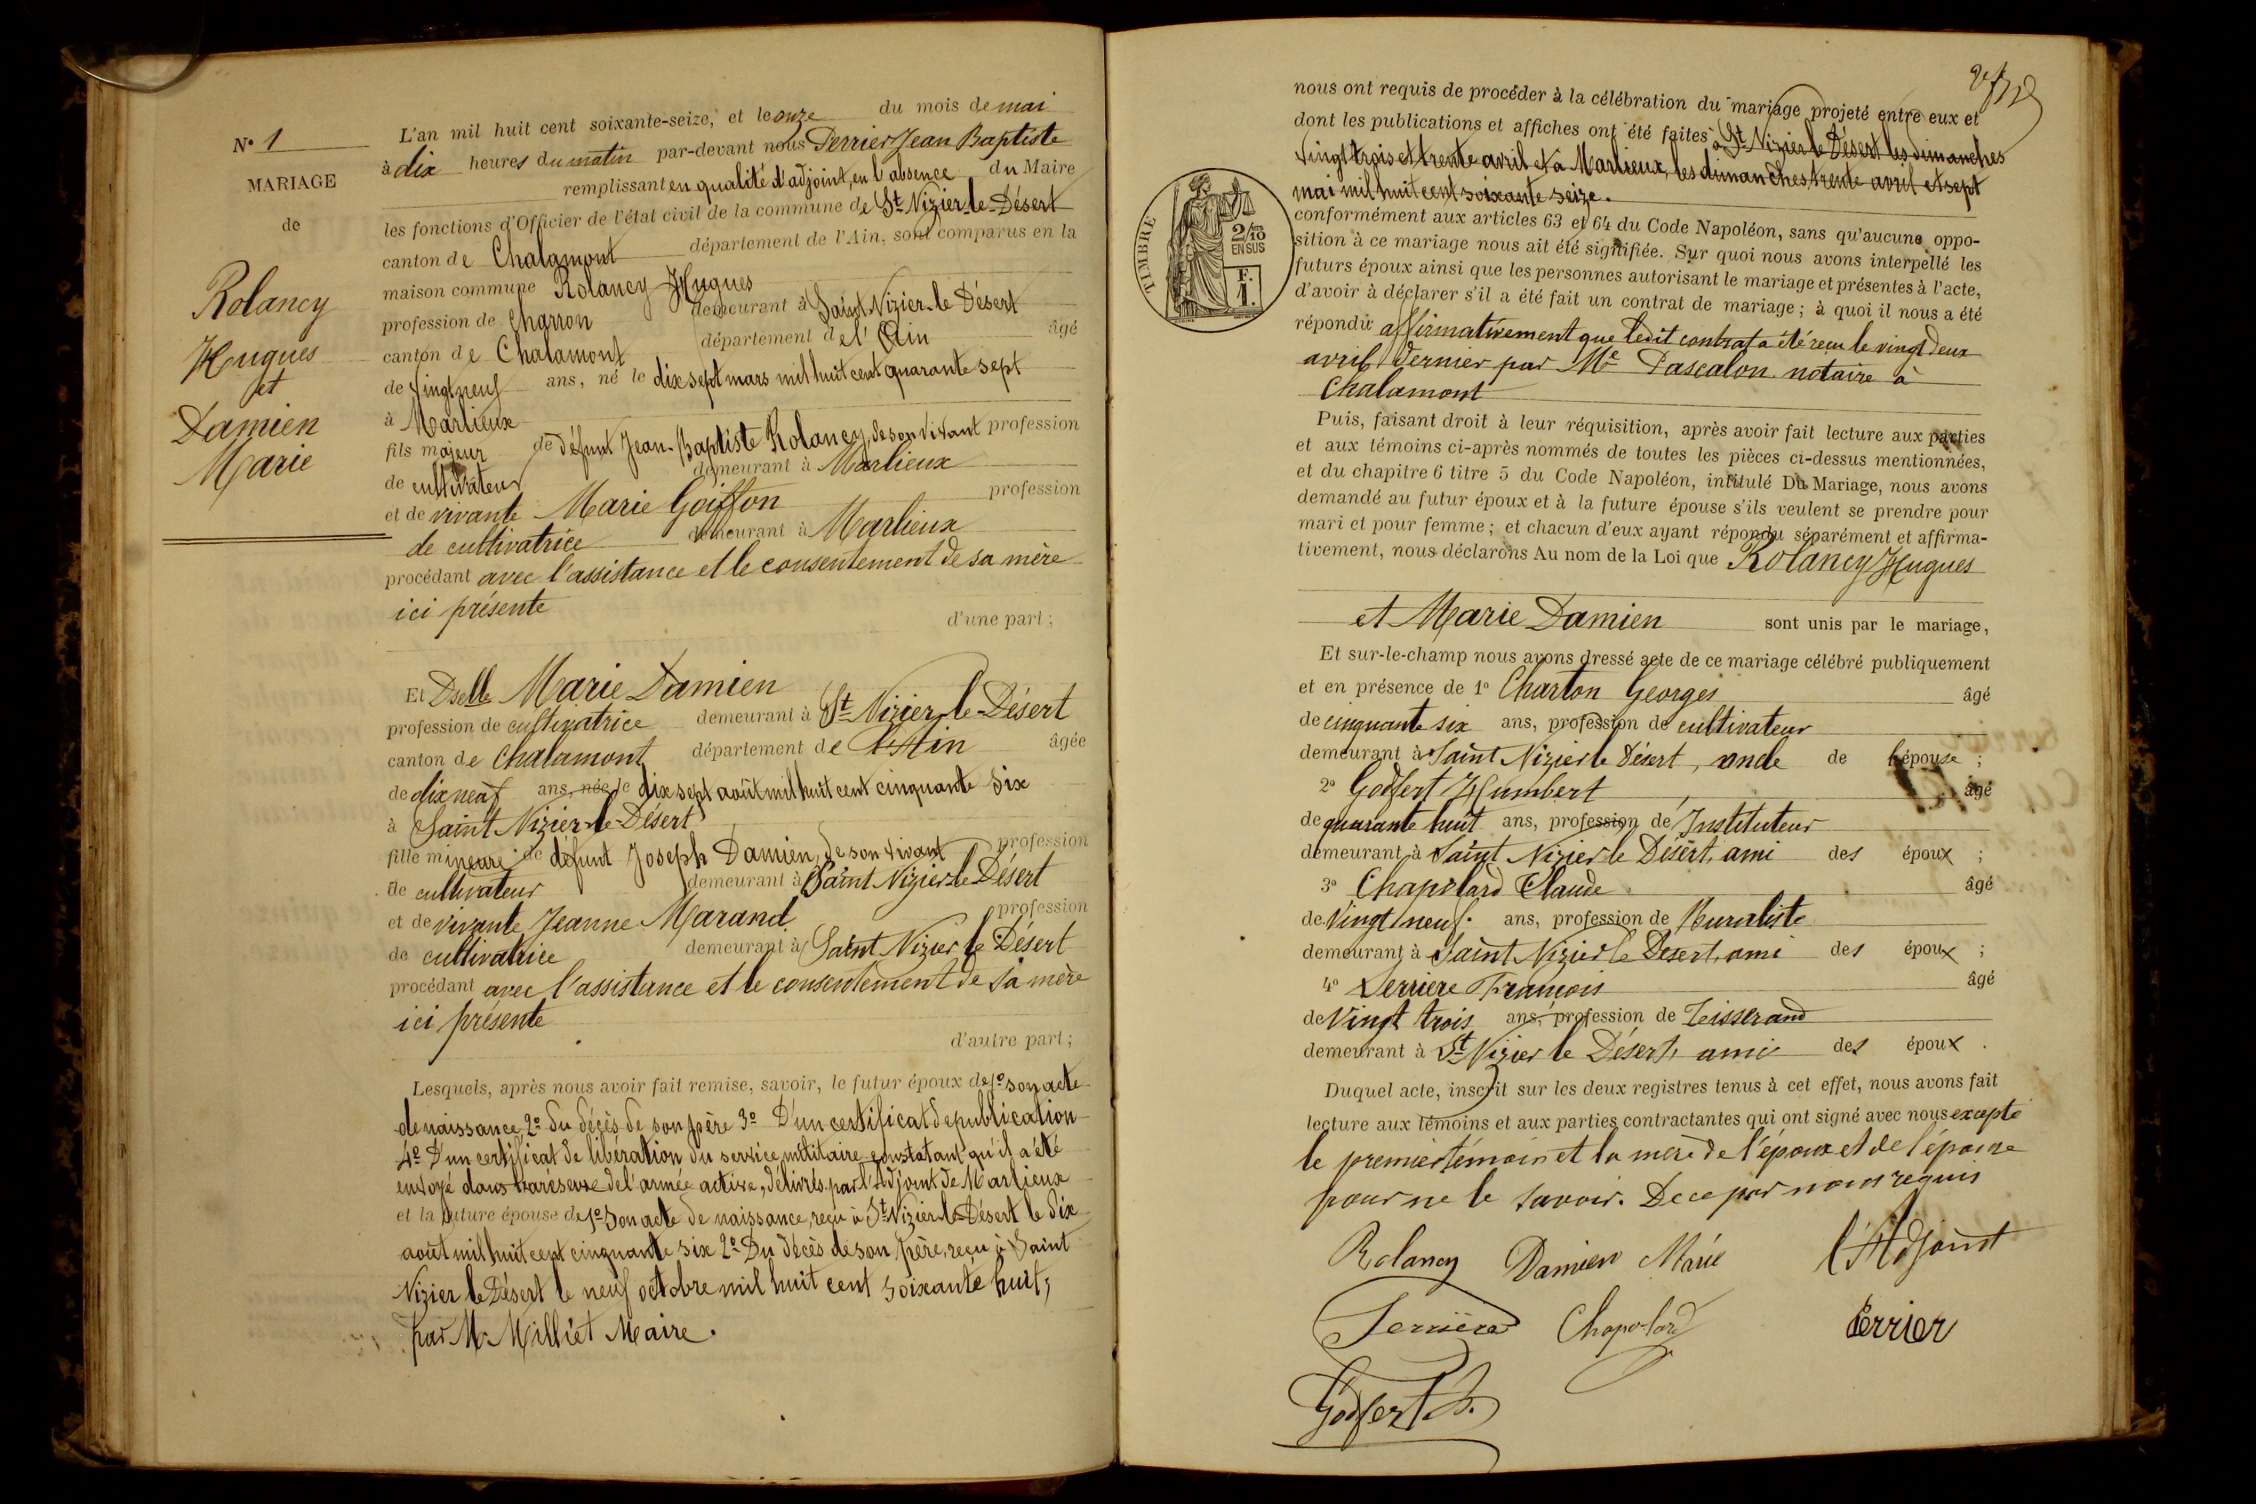 N° 1
MARIAGE
de
Rolancy
Hugues
et
Damien
Marie
L'an mil huit cent soixante-seize, et le onze du mois de mai
à dix heures du matin par-devant nous Perrier Jean Baptiste
remplissant en qualité d'adjoint, en l'absence du Maire
les fonctions d'Officier de l'état civil de la commune de St Nizier-le-Désert
canton de Chalamont département de l'Ain, sont comparus en la
maison commune Rolancy Hugues
profession de Charron demeurant à Saint Nizier-le Désert
canton de Chalamont département de l'Ain âgé
de vingt neuf ans, né le dix sept mars mil huit cent quarante sept
à Marlieux
fils majeur de défunt Jean-Baptiste Rolancy, de son vivant profession
de cultivateur demeurant à Marlieux
et de vivante Marie Goiffon profession
de cultivatrice demeurant à Marlieux
procédant avec l'assistance et le consentement de sa mère
ici présente
d'une part;
Et Dselle Marie Damien
profession de cultivatrice demeurant à St Nizier-le-Désert
canton de Chalamont département de l'Ain âgée
de dix neuf ans, née le dix sept août mil huit cent cinquante six
à Saint Nizier-le-Désert
fille mineure de défunt Joseph Damien, de son vivant profession
de cultivateur demeurant à Saint Nizier le Désert
et de vivante Jeanne Marand profession
de cultivatrice demeurant à Saint Nizier le Désert
procédant avec l'assistance et le consentement de sa mère
ici présente
d'autre part;
Lesquels, après nous avoir fait remise, savoir, le futur époux de 1° son acte
de naissance 2° du décès de son père 3° D'un certificat de publication
4° D'un certificat de libération du service militaire constatant qu'il a été
envoyé dans la réserve de l'armée active, délivrés par l'Adjoint de Marlieux
et la future épouse de 1° Son acte de naissance, reçu à St Nizier-le-Désert le dix
août mil huit cent cinquante six 2° Du décès de son père, reçu à Saint
Nizier le Désert le neuf octobre mil huit cent soixante huit,
par M. Milliet Maire.
nous ont requis de procéder à la célébration du mariage projeté entre eux et
dont les publications et affiches ont été faites à St Nizier le Désert les dimanches
vingt trois et trente avril et à Marlieux, les dimanches trente avril et sept
mai mil huit cent soixante seize.
TIMBRE
2/10
EN SUS
F.
1.
conformément aux articles 63 et 64 du Code Napoléon, sans qu'aucune oppo-
sition à ce mariage nous ait été signifiée. Sur quoi nous avons interpellé les
futurs époux ainsi que les personnes autorisant le mariage et présentes à l'acte,
d'avoir à déclarer s'il a été fait un contrat de mariage; à quoi il nous a été
répondu affirmativement que ledit contrat a été reçu le vingt deux
avril dernier par Me Pascalon notaire à
Chalamont
Puis, faisant droit à leur réquisition, après avoir fait lecture aux parties
et aux témoins ci-après nommés de toutes les pièces ci-dessus mentionnées,
et du chapitre 6 titre 5 du Code Napoléon, intitulé Du Mariage, nous avons
demandé au futur époux et à la future épouse s'ils veulent se prendre pour
mari et pour femme; et chacun d'eux ayant répondu séparément et affirma-
tivement, nous déclarons Au nom de la Loi que Rolancy Hugues
et Marie Damien sont unis par le mariage,
Et sur-le-champ nous avons dressé acte de ce mariage célébré publiquement
et en présence de 1° Charton Georges âgé
de cinquante six ans, profession de cultivateur
demeurant à Saint Nizier le Désert, oncle de l'épouse;
2° Godfert Humbert âgé
de quarante huit ans, profession de Instituteur
demeurant à Saint Nizier le Désert, ami des époux;
3° Chapolard Claude âgé
de Vingt neuf ans, profession de Buraliste
demeurant à Saint Nizier le Désert, ami des époux;
4° Perrière François âgé
de Vingt trois ans, profession de Tisserand
demeurant à St Nizier le Désert, ami des époux.
Duquel acte, inscrit sur les deux registres tenus à cet effet, nous avons fait
lecture aux témoins et aux parties contractantes qui ont signé avec nous excepté
le premier témoin et la mère de l'époux et de l'épouse
pour ne le savoir. De ce par nous requis
Rolancy Damien Marie l'Adjoint
Perrière Chapolard Perrier
Godfert h.